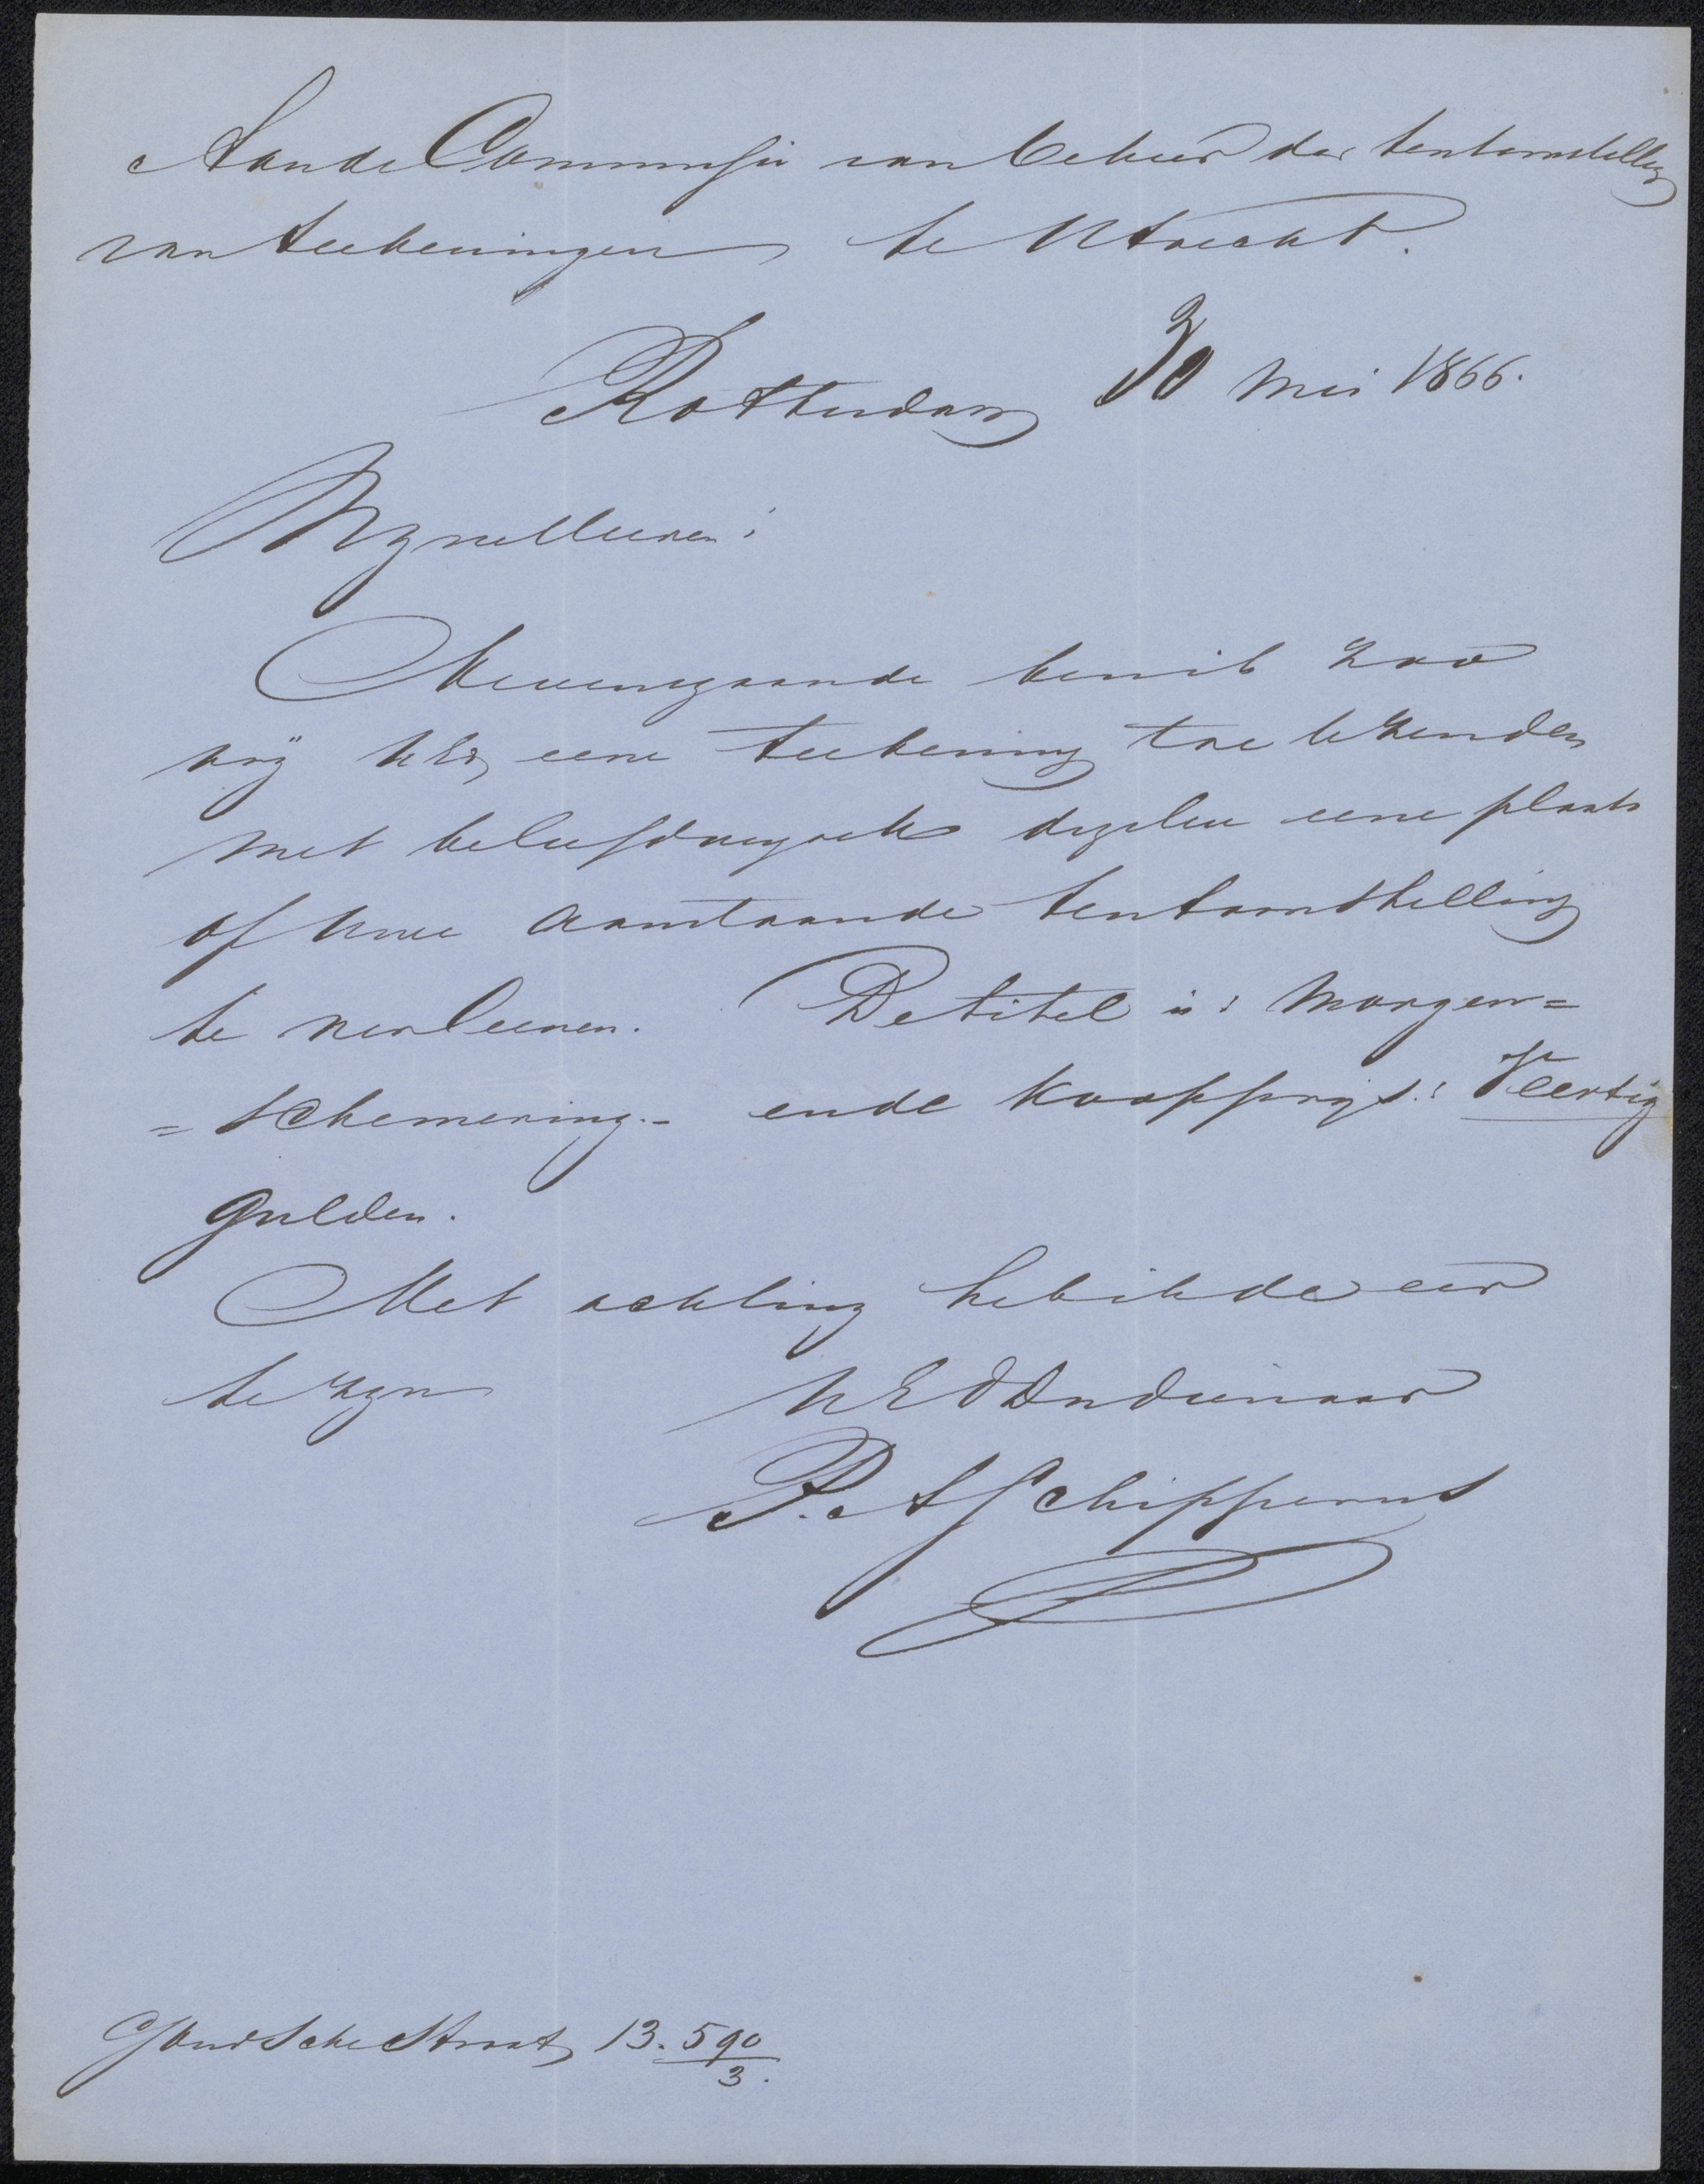 Aan de Commissie van beheer der tentoonstelling
van teekeningen te Utrecht.
Rotterdam 30 Mei 1866.
Mynelleeren!
Nevensgaande ben ik zoo
vrÿ UEd, eene teekening toe te zenden
met beleefd verzoek dezelve eene plaats
op uwe aanstaande tentoonstelling
te verleenen. De titel is: Morgen=
=schemering.- en de koopprys.: Veertig
gulden.
Met achting heb ik de eer
te zyn UEd Dn dienaar
P. A Schipperus
Goudsche Straat 13. 590
3.